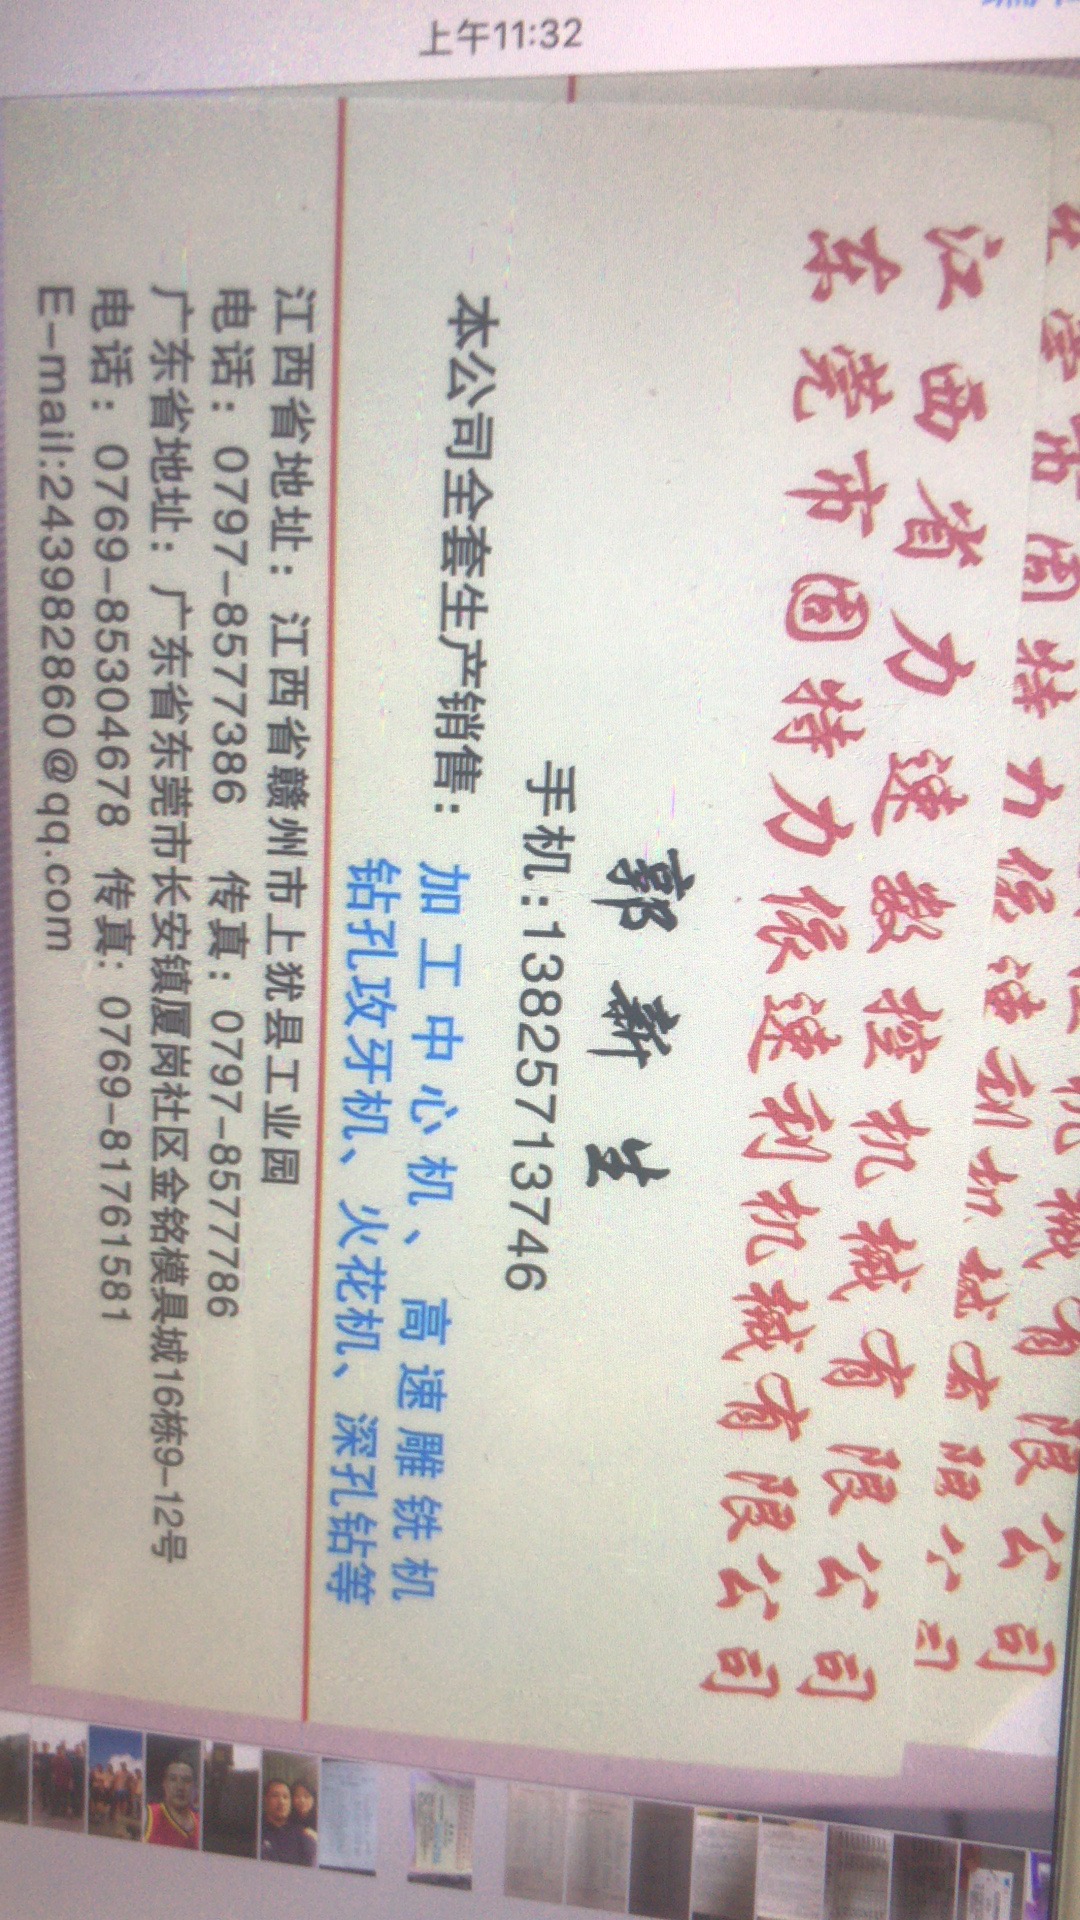 上午11:32
江西省力速数控机械有限公司
东莞市固特力保速利机械有限公司
郭新生
手机:13825713746
本公司全套生产销售:
加工中心机、高速雕铣机
钻孔攻牙机、火花机、深孔钻等
江西省地址: 江西省赣州市上犹县工业园
电话: 0797-8577386 传真: 0797-8577786
广东省地址: 广东省东莞市长安镇厦岗社区金铭模具城16栋9-12号
电话: 0769-85304678 传真: 0769-81761581
E-mail:243982860@qq.com